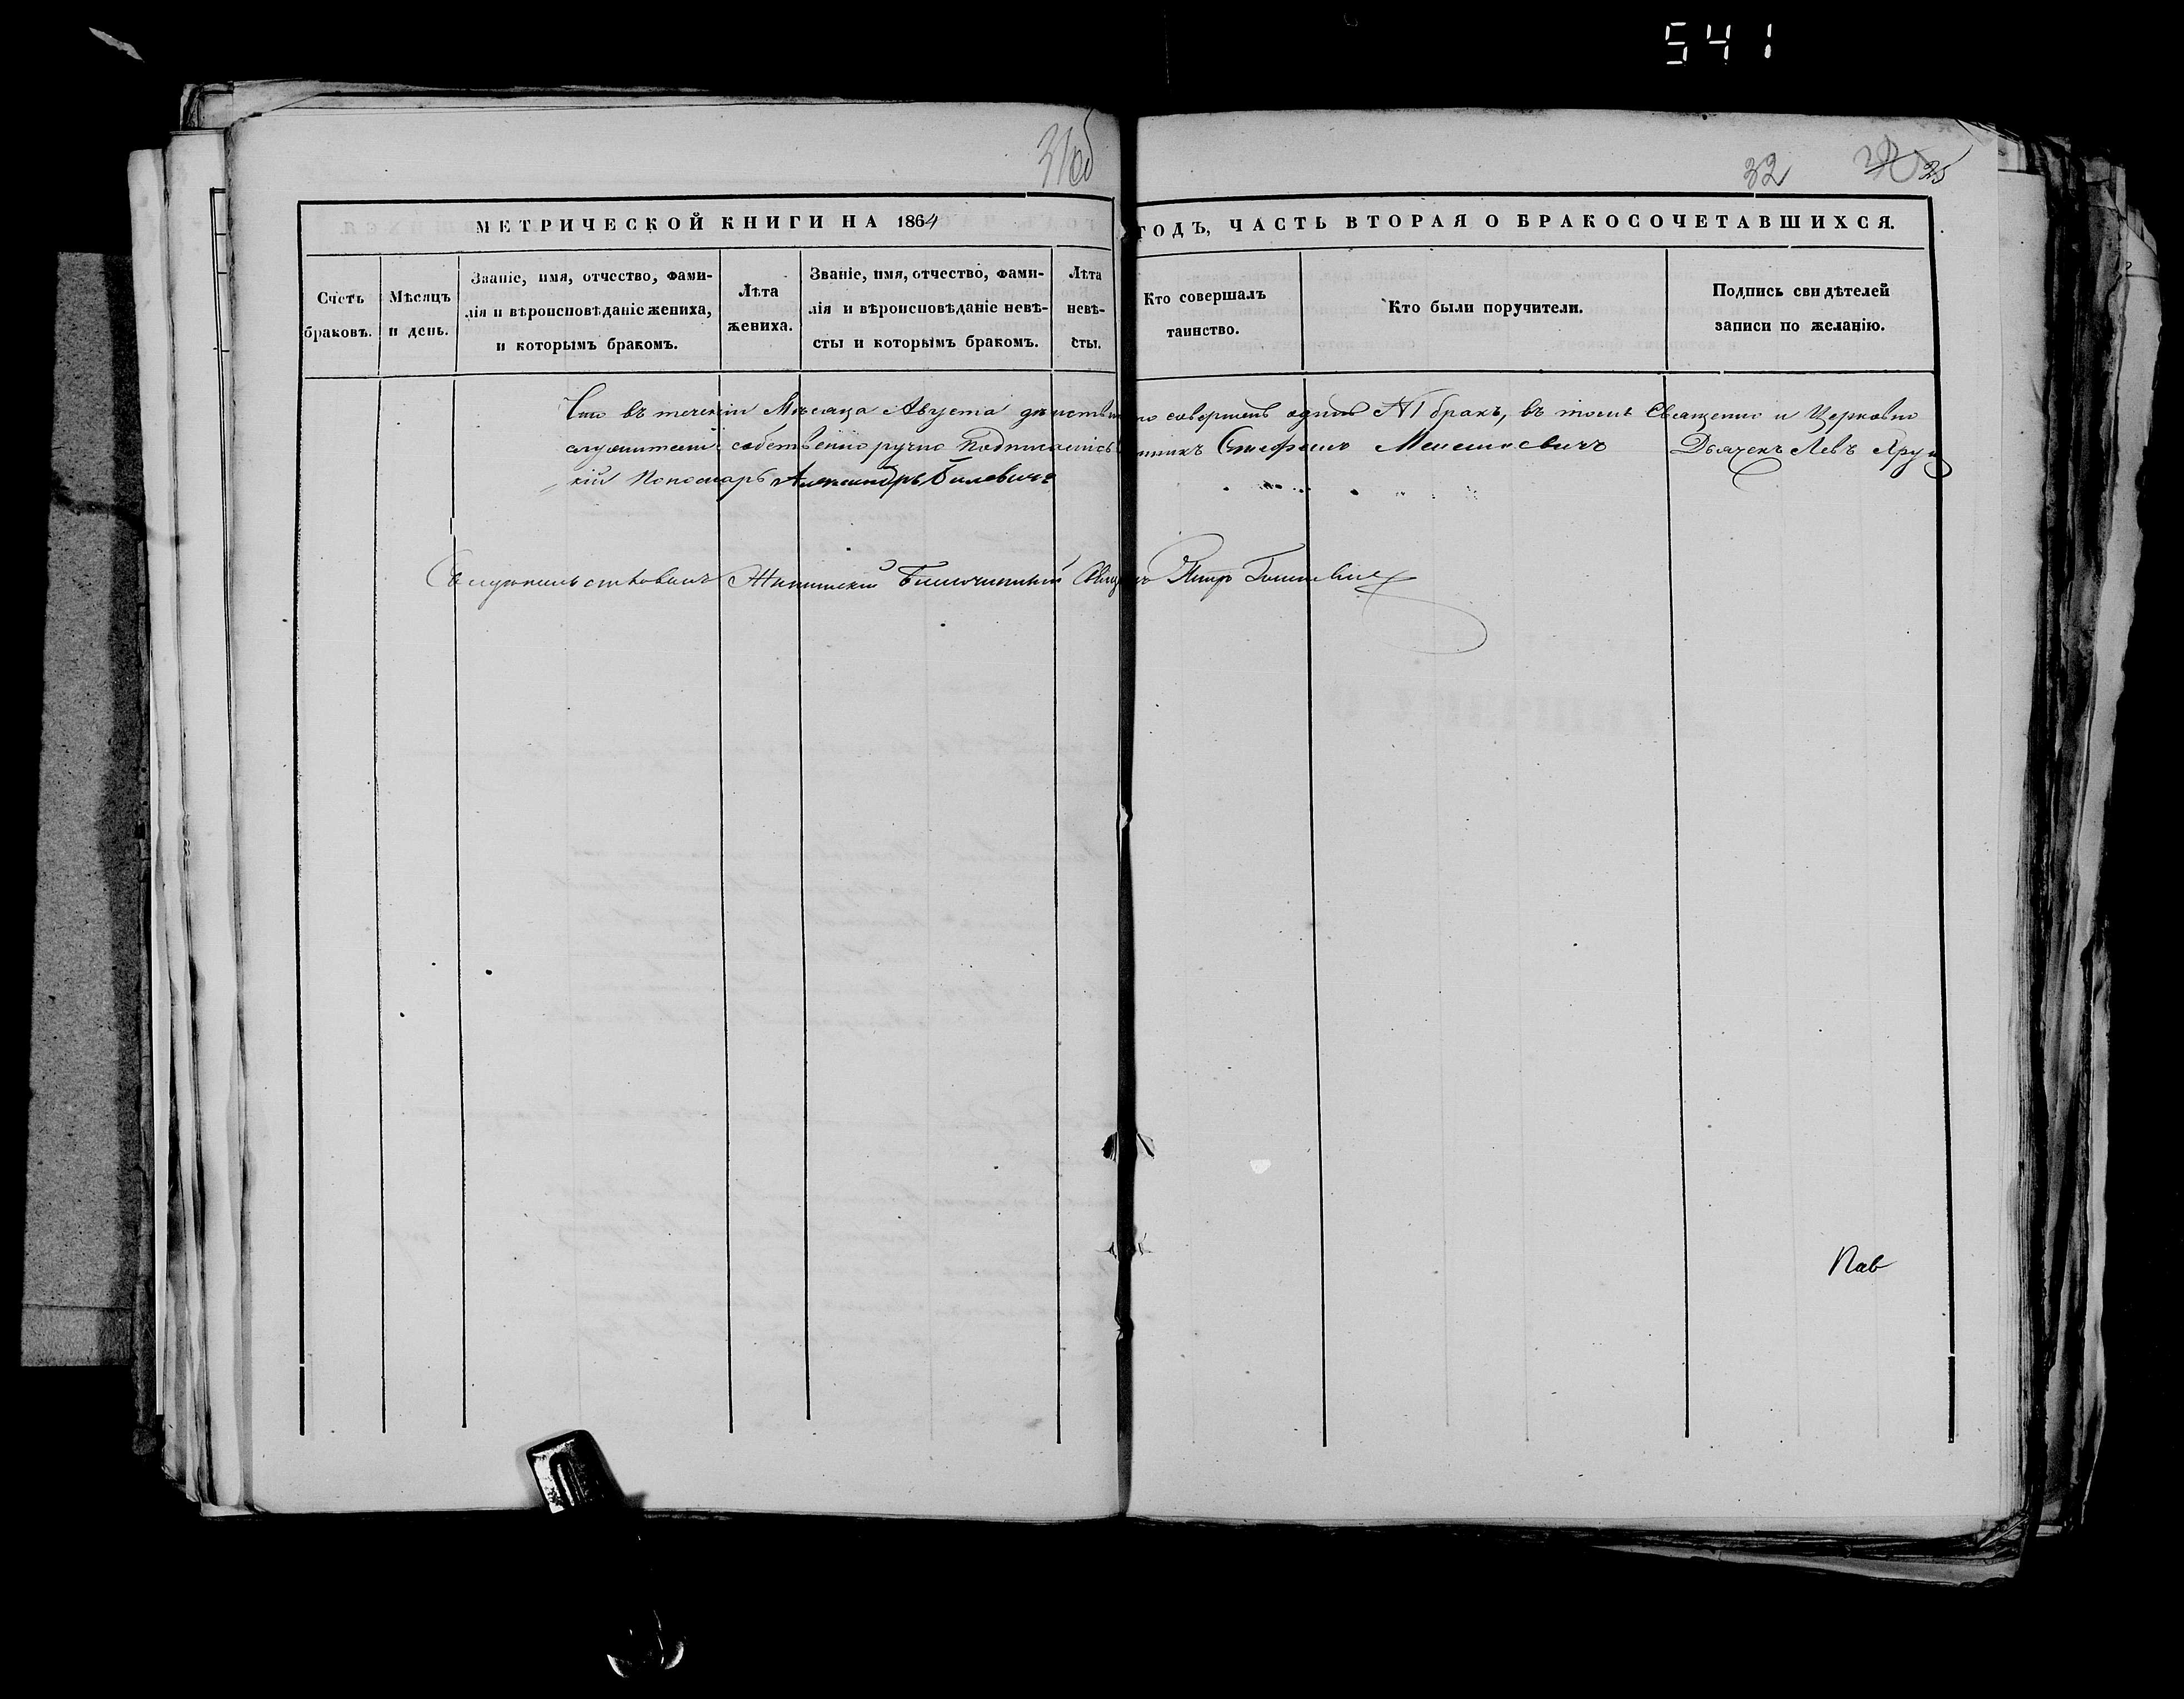 541
31об
32
25
МЕТРИЧЕСКОЙ КНИГИ НА 1864 ГОДЪ, ЧАСТЬ ВТОРАЯ О БРАКОСОЧЕТАВШИХСЯ.
Счетъ
браковъ.
Мѣсяцъ
и день.
Званіе, имя, отчество, фами-
лія и вѣроисповѣданіе жениха,
и которымъ бракомъ.
Лѣта
жениха.
Званіе, имя, отчество, фами-
лія и вѣроисповѣданіе невѣ-
сты и которымъ бракомъ.
Лѣта
невѣ-
сты.
Кто совершалъ
таинство.
Кто были поручители.
Подпись свидѣтелей
записи по желанію.
Что въ теченіи Мѣсяца Августа дѣйствительно совершенъ одинъ №1 бракъ, въ томъ Священно и Церковно
служители собственноручно подписались Стефанъ Дьячекъ Левъ
кій Пономарь Александръ Билевичъ
Петръ
Пав